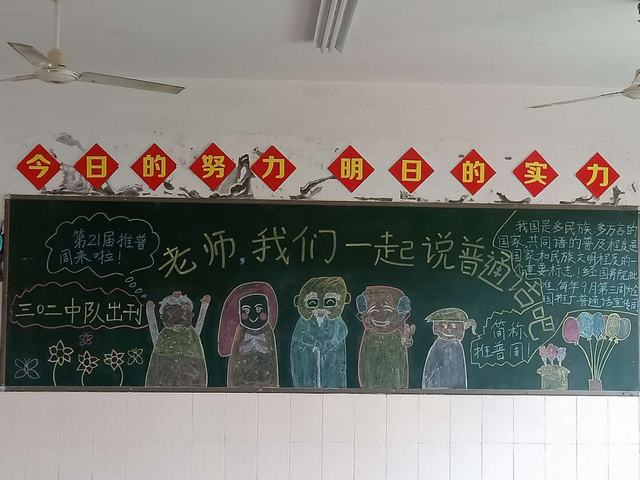 今日的努力 明日的实力
第21届推普
周来啦！
老师,我们一起说普通话吧
三〇二中队出刊
我国是多民族、多方言的
国家,共同语的普及程度是
国家和民族文明程度的一
个重要标志！经国务院批
准,每年9月第三周为全
国推广普通话宣传周
简称
推普周！